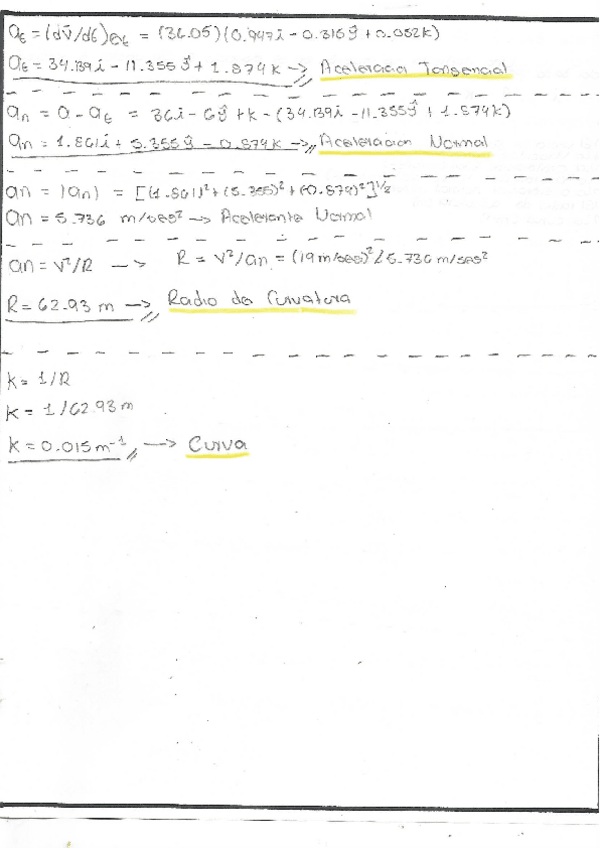 at = (dv̄/dt)et = (36.05)(0.947i - 0.316ĵ + 0.052k)
at = 34.139i - 11.355ĵ + 1.874k -> Aceleracion Tangencial
an = a - at = 36i - 6ĵ + k - (34.139i - 11.355ĵ + 1.874k)
an = 1.861i + 5.355ĵ - 0.874k -> Aceleracion Normal
an = |an| = [(1.861)² + (5.355)² + (-0.874)²]½
an = 5.736 m/seg² -> Acelerante Normal
an = v²/R -> R = v²/an = (19 m/seg)²/5.736 m/seg²
R = 62.93 m -> Radio de Curvatura
k = 1/R
k = 1/62.93 m
k = 0.015 m⁻¹ -> Curva